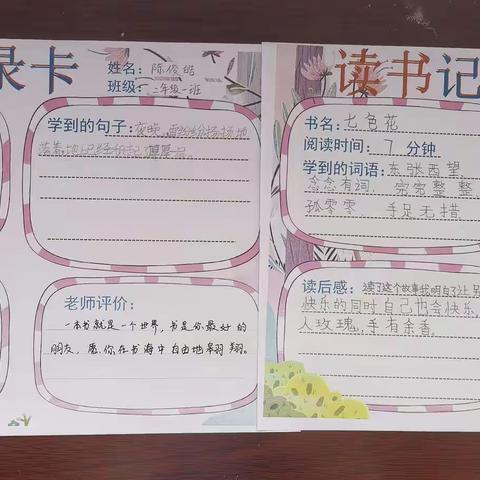 录卡
姓名：陈俊皓
班级：二年级一班
学到的句子：夜晚，雪纷纷扬扬地
落着，地上已经积起
老师评价：
一本书就是一个世界，书是你最好的
朋友，愿你在书海中自由地翱翔。
读书记
书名：七色花
阅读时间：7 分钟
学到的词语：东张西望、
念念有词、完完整整
孤零零、手足无措
读后感：读了这个故事我明白了让别
快乐的同时自己也会快乐
人玫瑰，手有余香。